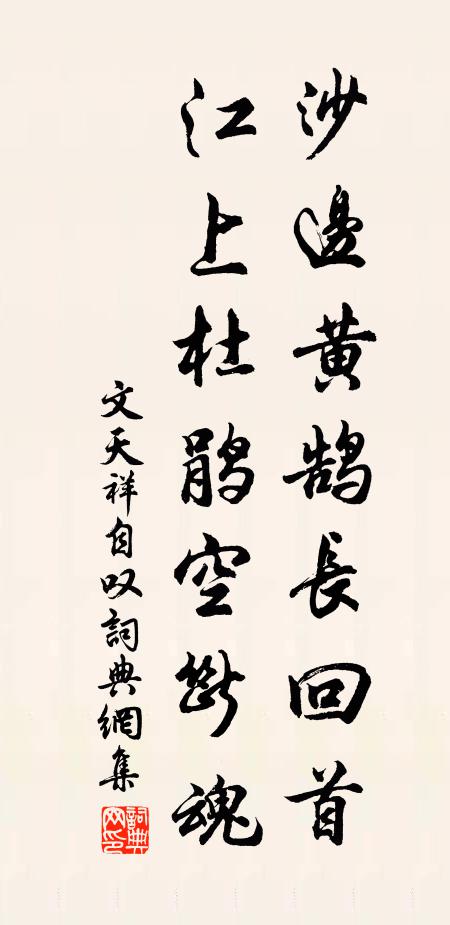 沙邊黃鵠長回首
江上杜鵑空斷魂
文天祥自叹詞典網集
詞典网印